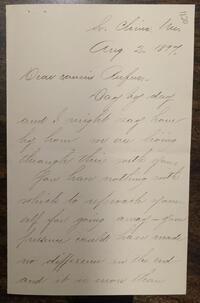 So. China Me.
Aug 2. 1897.
Dear cousin Rufus.
Day by day
and I might say hour
by hour we are living
through this with you.
You have nothing with
which to reproach your-
self for going away - your
presence could have made
no difference in the end
and it is more than